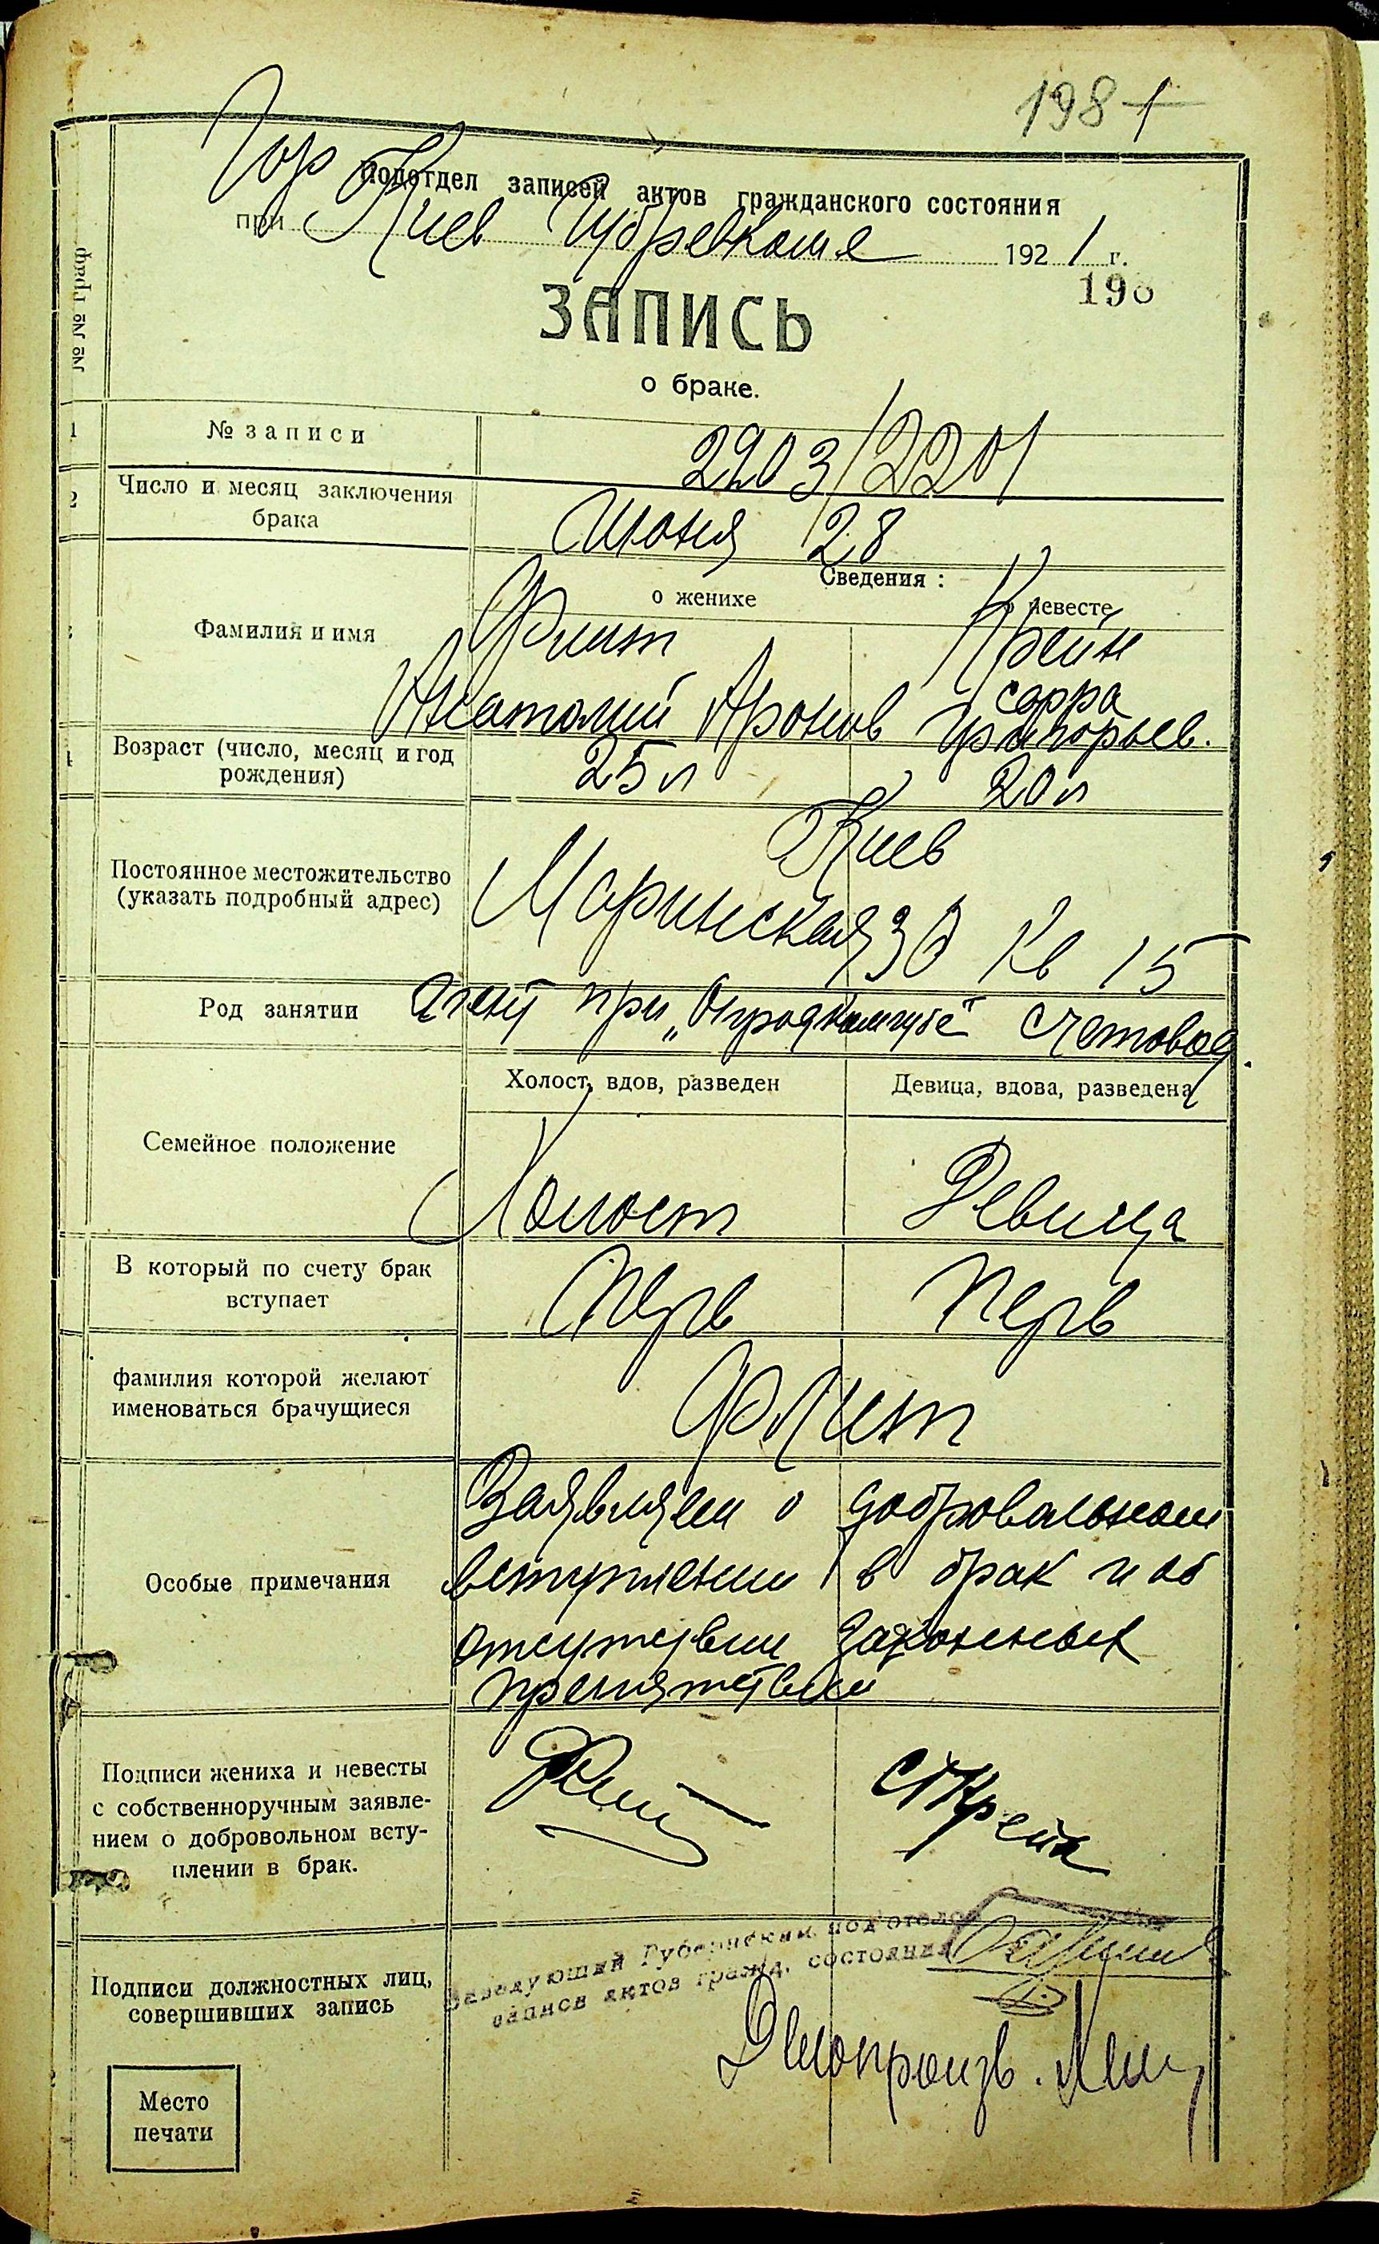 198 1
Гор подотдел записей актов гражданского состояния
при Киев Губревкоме 1921 г.
198
ЗАПИСЬ
о браке.
№№ граф
1 № записи 2203/2201
2 Число и месяц заключения
брака Июня 28
Сведения:
о женихе о невесте
Фамилия и имя Флит Крейн
Анатолий Аронов Сарра
Григорьев.
Возраст (число, месяц и год
рождения) 25 л 20 л
Киев
Постоянное местожительство
(указать подробный адрес) Мариинская 30 кв 15
Род занятии Агент при „Опродкомгубе“ Счетовод.
Холост, вдов, разведен Девица, вдова, разведена
Семейное положение Холост Девица
В который по счету брак
вступает Перв Перв
фамилия которой желают
именоваться брачущиеся Флит
Заявляем о добровольном
вступлении в брак и об
Особые примечания
отсутствии законных
препятствий
Подписи жениха и невесты Флит С Крейн
с собственноручным заявле-
нием о добровольном всту-
плении в брак.
Заведующий Губернским под'отделом
записи актов гражд. состояния
Подписи должностных лиц,
совершивших запись
Делопроизв.
Место
печати